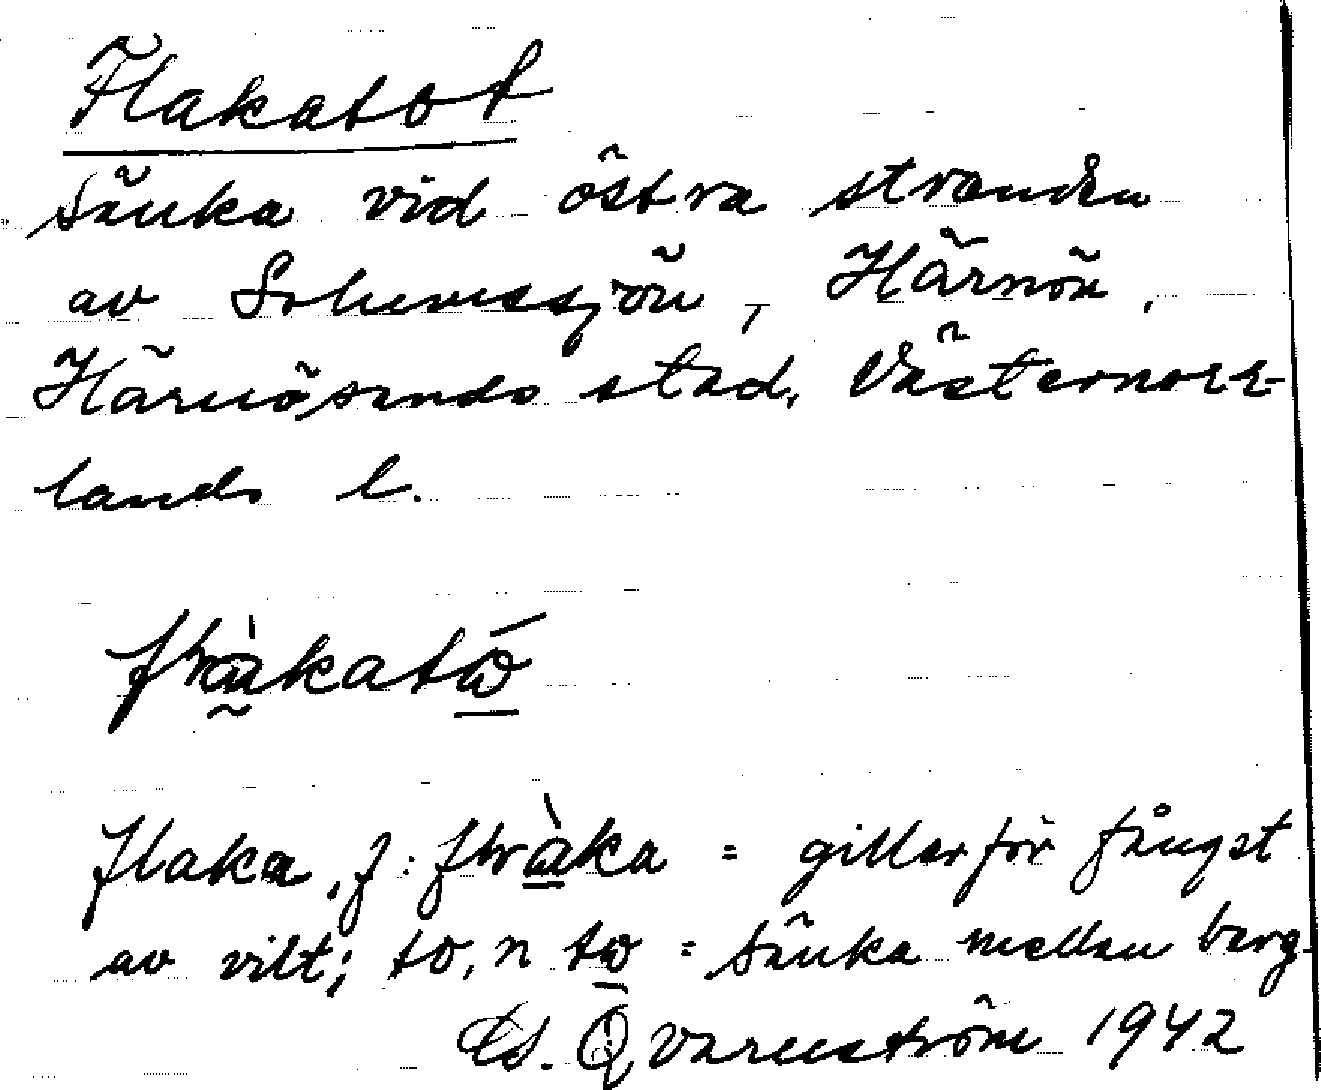 Flakatot
sänka vid östra stranden
av Solumssjön, Härnön,
Härnösands stad, Västernorr-
lands l.
flaka, f: = gillar för fångst
av vilt; to, n = sänka mellan berg.
Qvarnström 1942